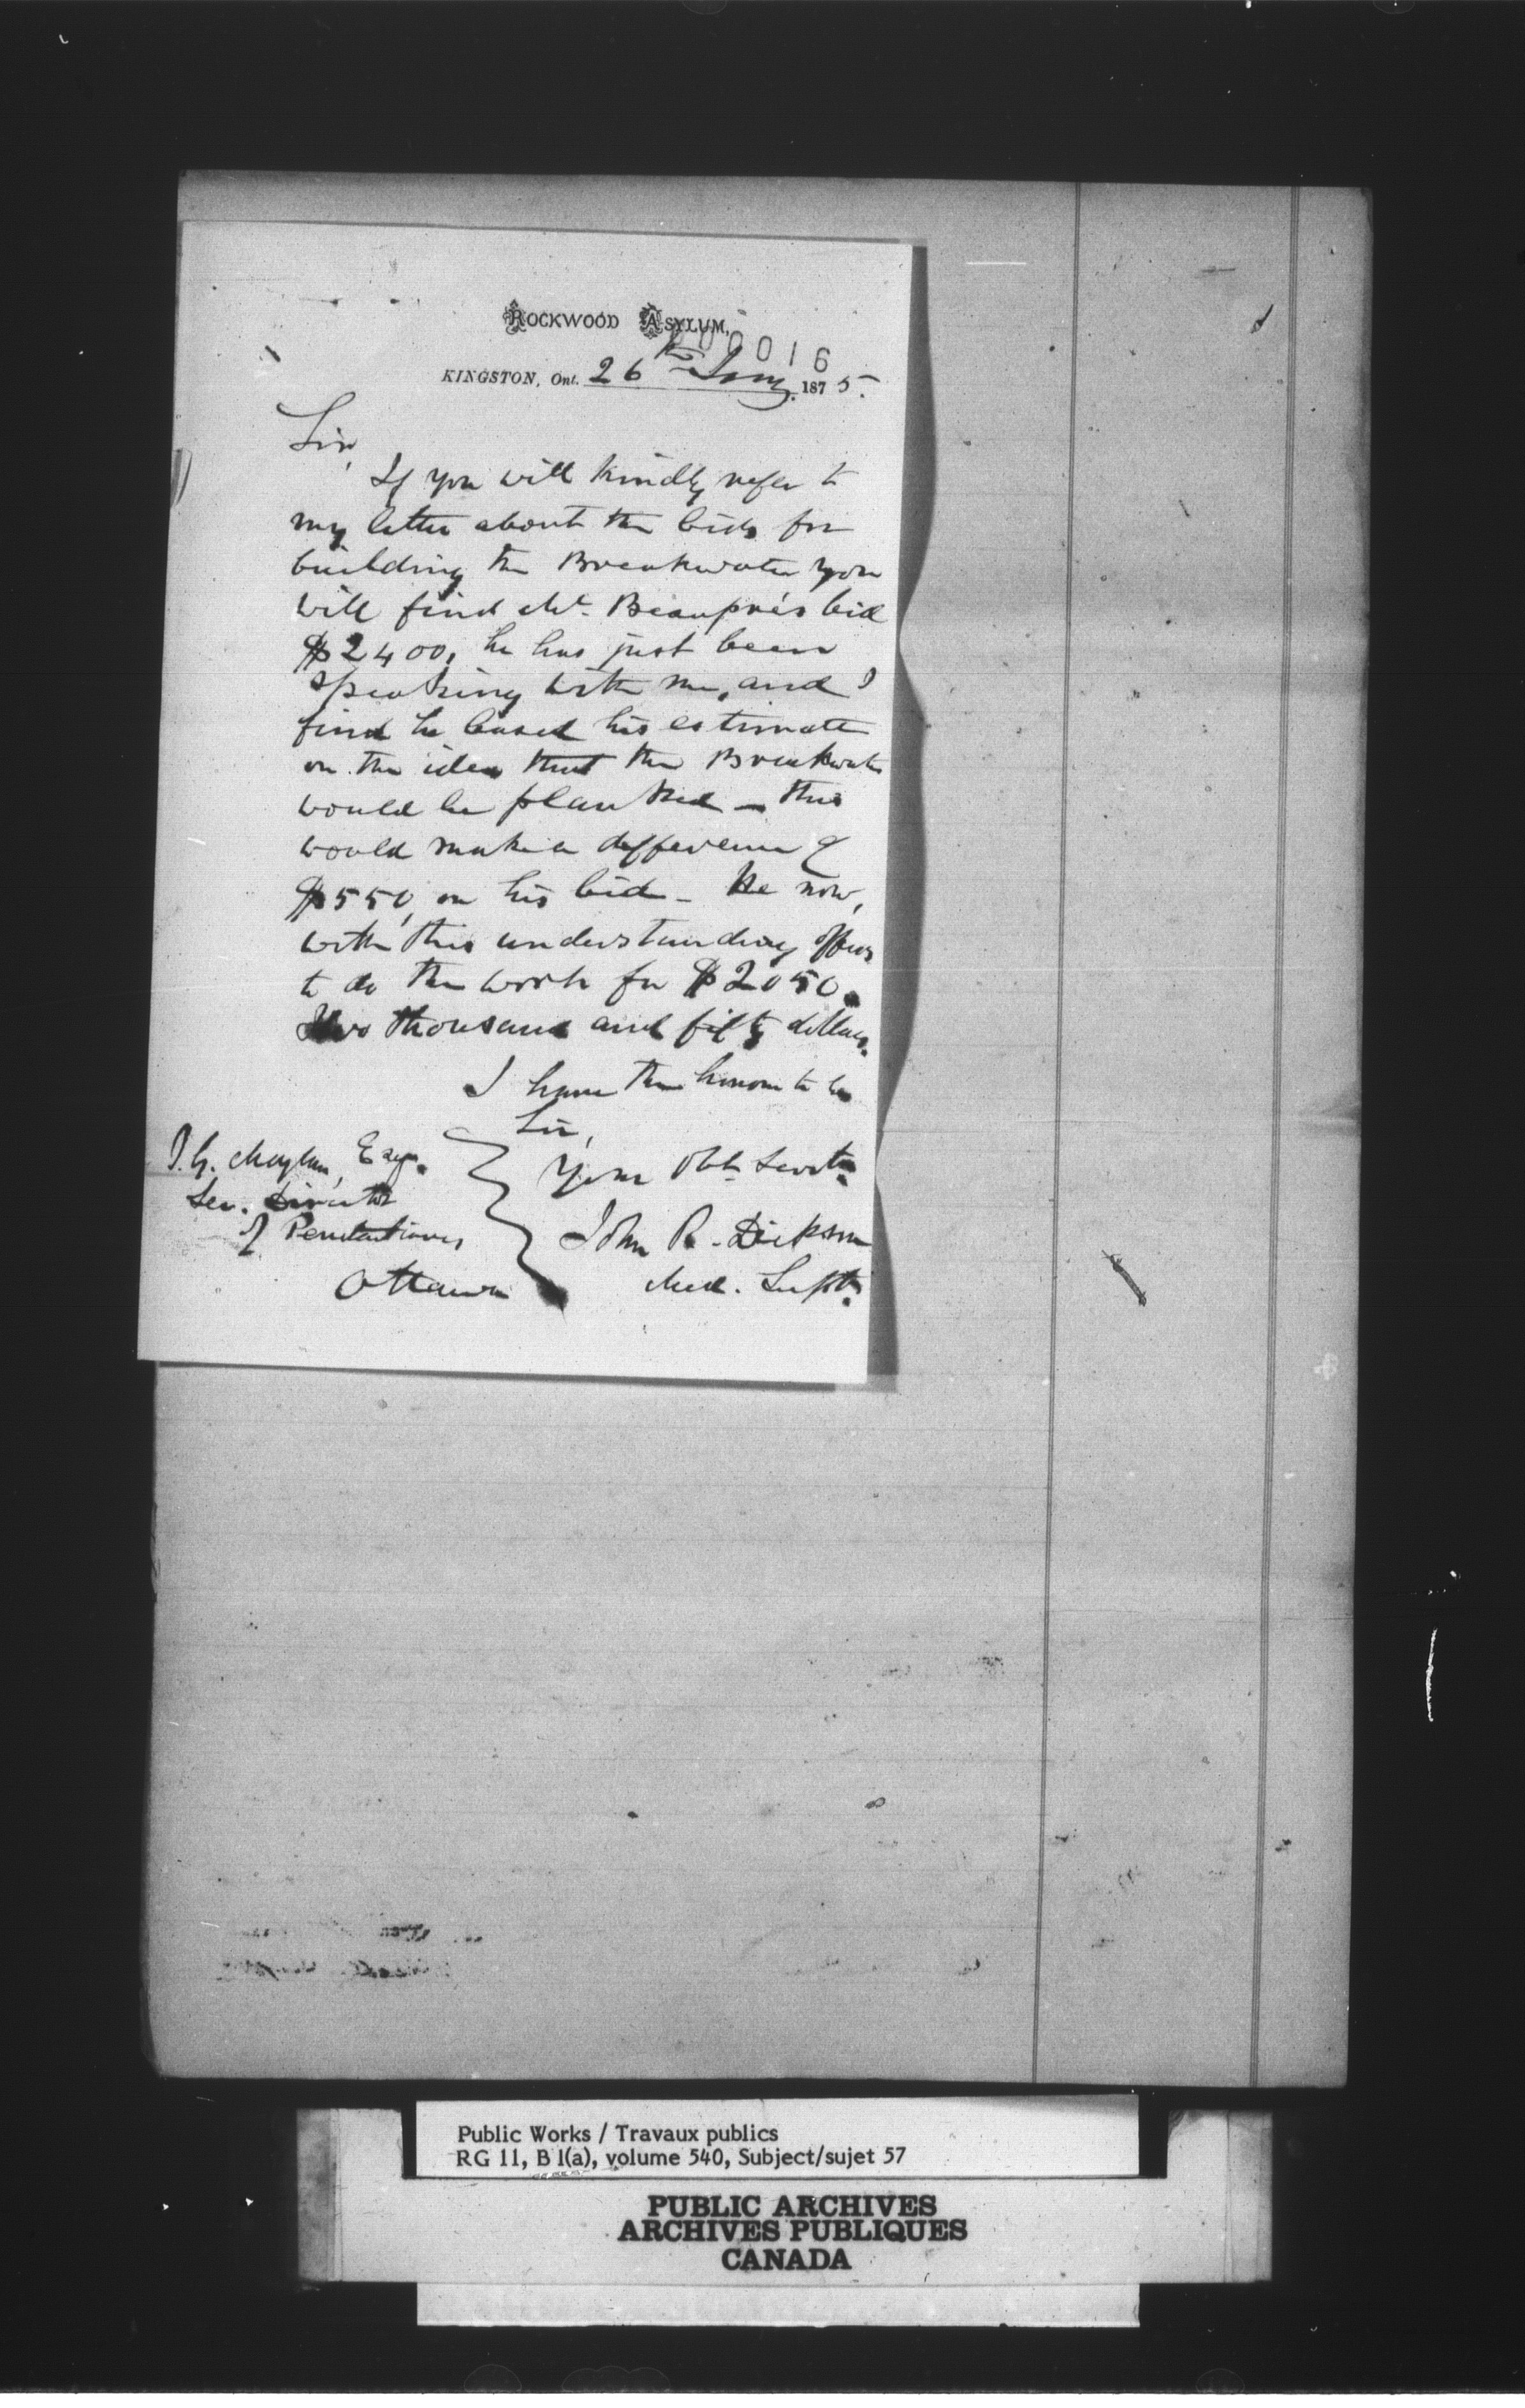 ROCKWOOD ASYLUM,
000016
KINGSTON, Ont. 26th Jany. 1875.
Sir,
If you will kindly refer to
my letter about the bids for
building the Breakwater you
will find Mr. Beaupré's bid
$2400, he has just been
speaking with me, and I
find he based his estimate
on the idea that the Breakwater
would be planked — this
would make a difference of
$550, on his bid - He now,
with this understanding offers
to do the work for $2050.
Two thousand and fifty dollars.
I have the honour to be
Sir,
Your Obt. Servt.
John R. Dickson
Med. Supt.
J. G. Moylan, Esqr.
Sec. Director
of Penitentiaries
Ottawa
Public Works / Travaux publics
RG 11, B 1(a), volume 540, Subject/sujet 57
PUBLIC ARCHIVES
ARCHIVES PUBLIQUES
CANADA